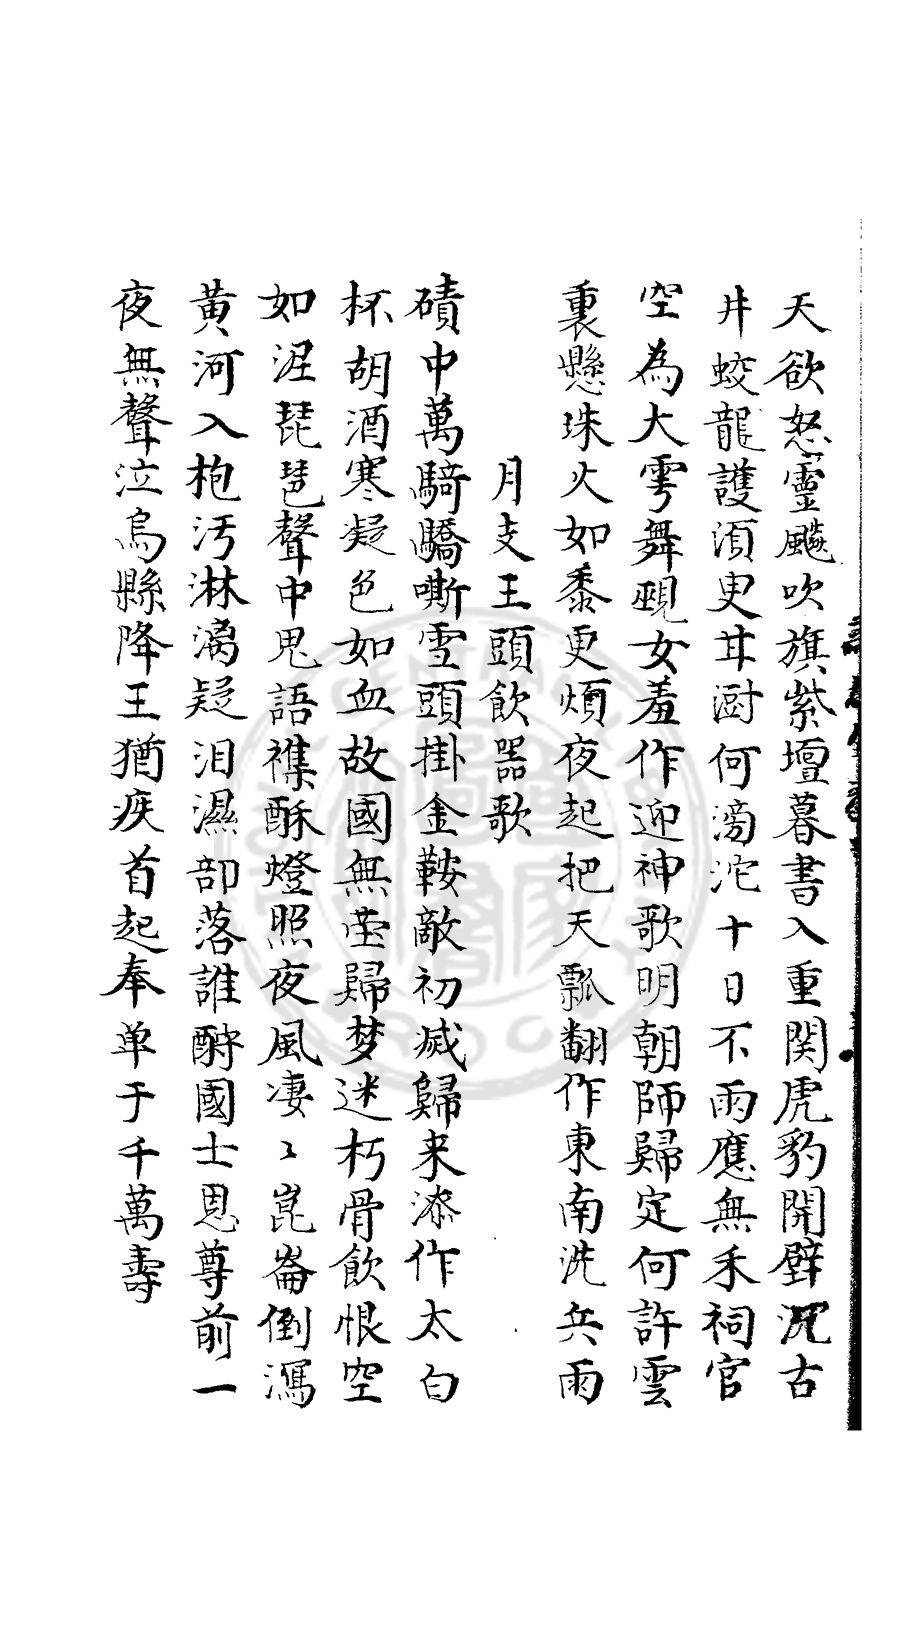 天欲怒靈飈吹旗紫壇暮書入重関虎豹開壁沉古
井蛟龍護湏臾耳澍何滂沱十日不雨應無禾祠官
空為大雩舞覡女羞作迎神歌明朝師歸定何許雲
裏懸珠火如黍更煩夜起把天瓢翻作東南洗兵雨
月支王頭飲器歌
磧中萬騎驕嘶雪頭掛金鞍敵初滅歸来漆作太白
杯胡酒寒凝色如血故國無塋歸梦迷朽骨飲恨空
如泥琵琶聲中鬼語襍酥燈照夜風凄〻崑崙倒瀉
黄河入枹汚淋漓疑泪濕部落誰酧國士恩尊前一
夜無聲泣烏縣降王猶疾首起奉单于千萬壽